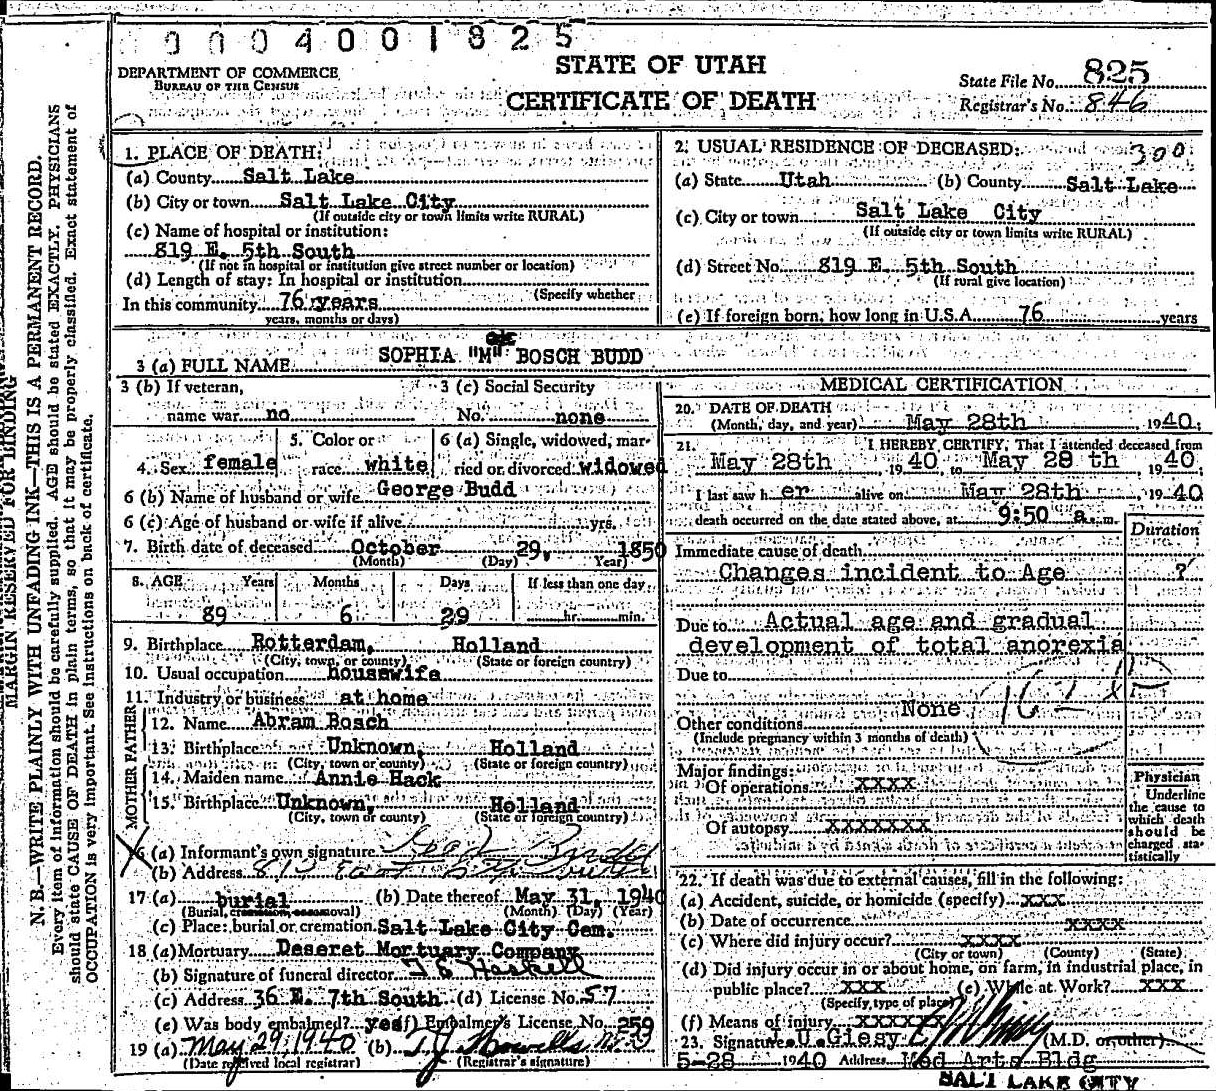 0004001825
DEPARTMENT OF COMMERCE
BUREAU OF THE CENSUS
STATE OF UTAH
CERTIFICATE OF DEATH
State File No. 825
Registrar's No. 846
MARGIN RESERVED FOR BINDING
N. B.—WRITE PLAINLY WITH UNFADING INK—THIS IS A PERMANENT RECORD.
Every item of information should be carefully supplied. AGE should be stated EXACTLY. PHYSICIANS
should state CAUSE OF DEATH in plain terms, so that it may be properly classified. Exact statement of
OCCUPATION is very important. See instructions on back of certificate.
1. PLACE OF DEATH:
(a) County Salt Lake
(b) City or town Salt Lake City
(If outside city or town limits write RURAL)
(c) Name of hospital or institution:
819 E. 5th South
(If not in hospital or institution give street number or location)
(d) Length of stay: In hospital or institution
(Specify whether
In this community 76 years
years, months or days)
2. USUAL RESIDENCE OF DECEASED: 300
(a) State Utah (b) County Salt Lake
(c) City or town Salt Lake City
(If outside city or town limits write RURAL)
(d) Street No. 819 E. 5th South
(If rural give location)
(e) If foreign born, how long in U.S.A. 76 years
3 (a) FULL NAME SOPHIA "M" BOSCH BUDD
3 (b) If veteran, 3 (c) Social Security
name war no No. none
4. Sex female 5. Color or race white 6 (a) Single, widowed, married or divorced widowed
6 (b) Name of husband or wife George Budd
6 (c) Age of husband or wife if alive yrs.
7. Birth date of deceased October 29, 1850
(Month) (Day) Year)
8. AGE Years Months Days If less than one day
89 6 29 hr. min.
9. Birthplace Rotterdam, Holland
(City, town, or county) (State or foreign country)
10. Usual occupation housewife
11. Industry or business at home
FATHER
12. Name Abram Bosch
13. Birthplace Unknown, Holland
(City, town or county) (State or foreign country)
MOTHER
14. Maiden name Annie Hack
15. Birthplace Unknown, Holland
(City, town or county) (State or foreign country)
(a) Informant's own signature Budd
(b) Address 819 East 5th South
17 (a) burial (b) Date thereof May 31, 1940
(Burial, cremation, removal) (Month) (Day) (Year)
(c) Place: burial or cremation Salt Lake City Cem.
18 (a) Mortuary Deseret Mortuary Company
(b) Signature of funeral director
(c) Address 36 E. 7th South (d) License No. 57
(e) Was body embalmed? yes (f) Embalmer's License No. 259
19 (a) May 29, 1940 (b) T. J. Howells M.D
(Date received local registrar) (Registrar's signature)
MEDICAL CERTIFICATION
20. DATE OF DEATH
(Month, day, and year) May 28th 1940.
21. I HEREBY CERTIFY, That I attended deceased from
May 28th, 1940, to May 28 th 1940.
I last saw her alive on May 28th, 1940
death occurred on the date stated above, at 9:50 a.m.
Duration
Immediate cause of death
Changes incident to Age ?
Due to Actual age and gradual
development of total anorexia
Due to
162
Other conditions None
(Include pregnancy within 3 months of death)
Major findings:
Of operations XXXX
Of autopsy XXXXXXX
Physician
Underline
the cause to
which death
should be
charged sta-
tistically
22. If death was due to external causes, fill in the following:
(a) Accident, suicide, or homicide (specify) XXX
(b) Date of occurrence XXXX
(c) Where did injury occur? XXXX
(City or town) (County) (State)
(d) Did injury occur in or about home, on farm, in industrial place, in
public place? XXX (e) While at Work? XXX
(Specify type of place)
(f) Means of injury XXXXXX
23. Signature J.U.Giesy (M.D. or other)
5-28 1940 Address Med Arts Bldg
SALT LAKE CITY